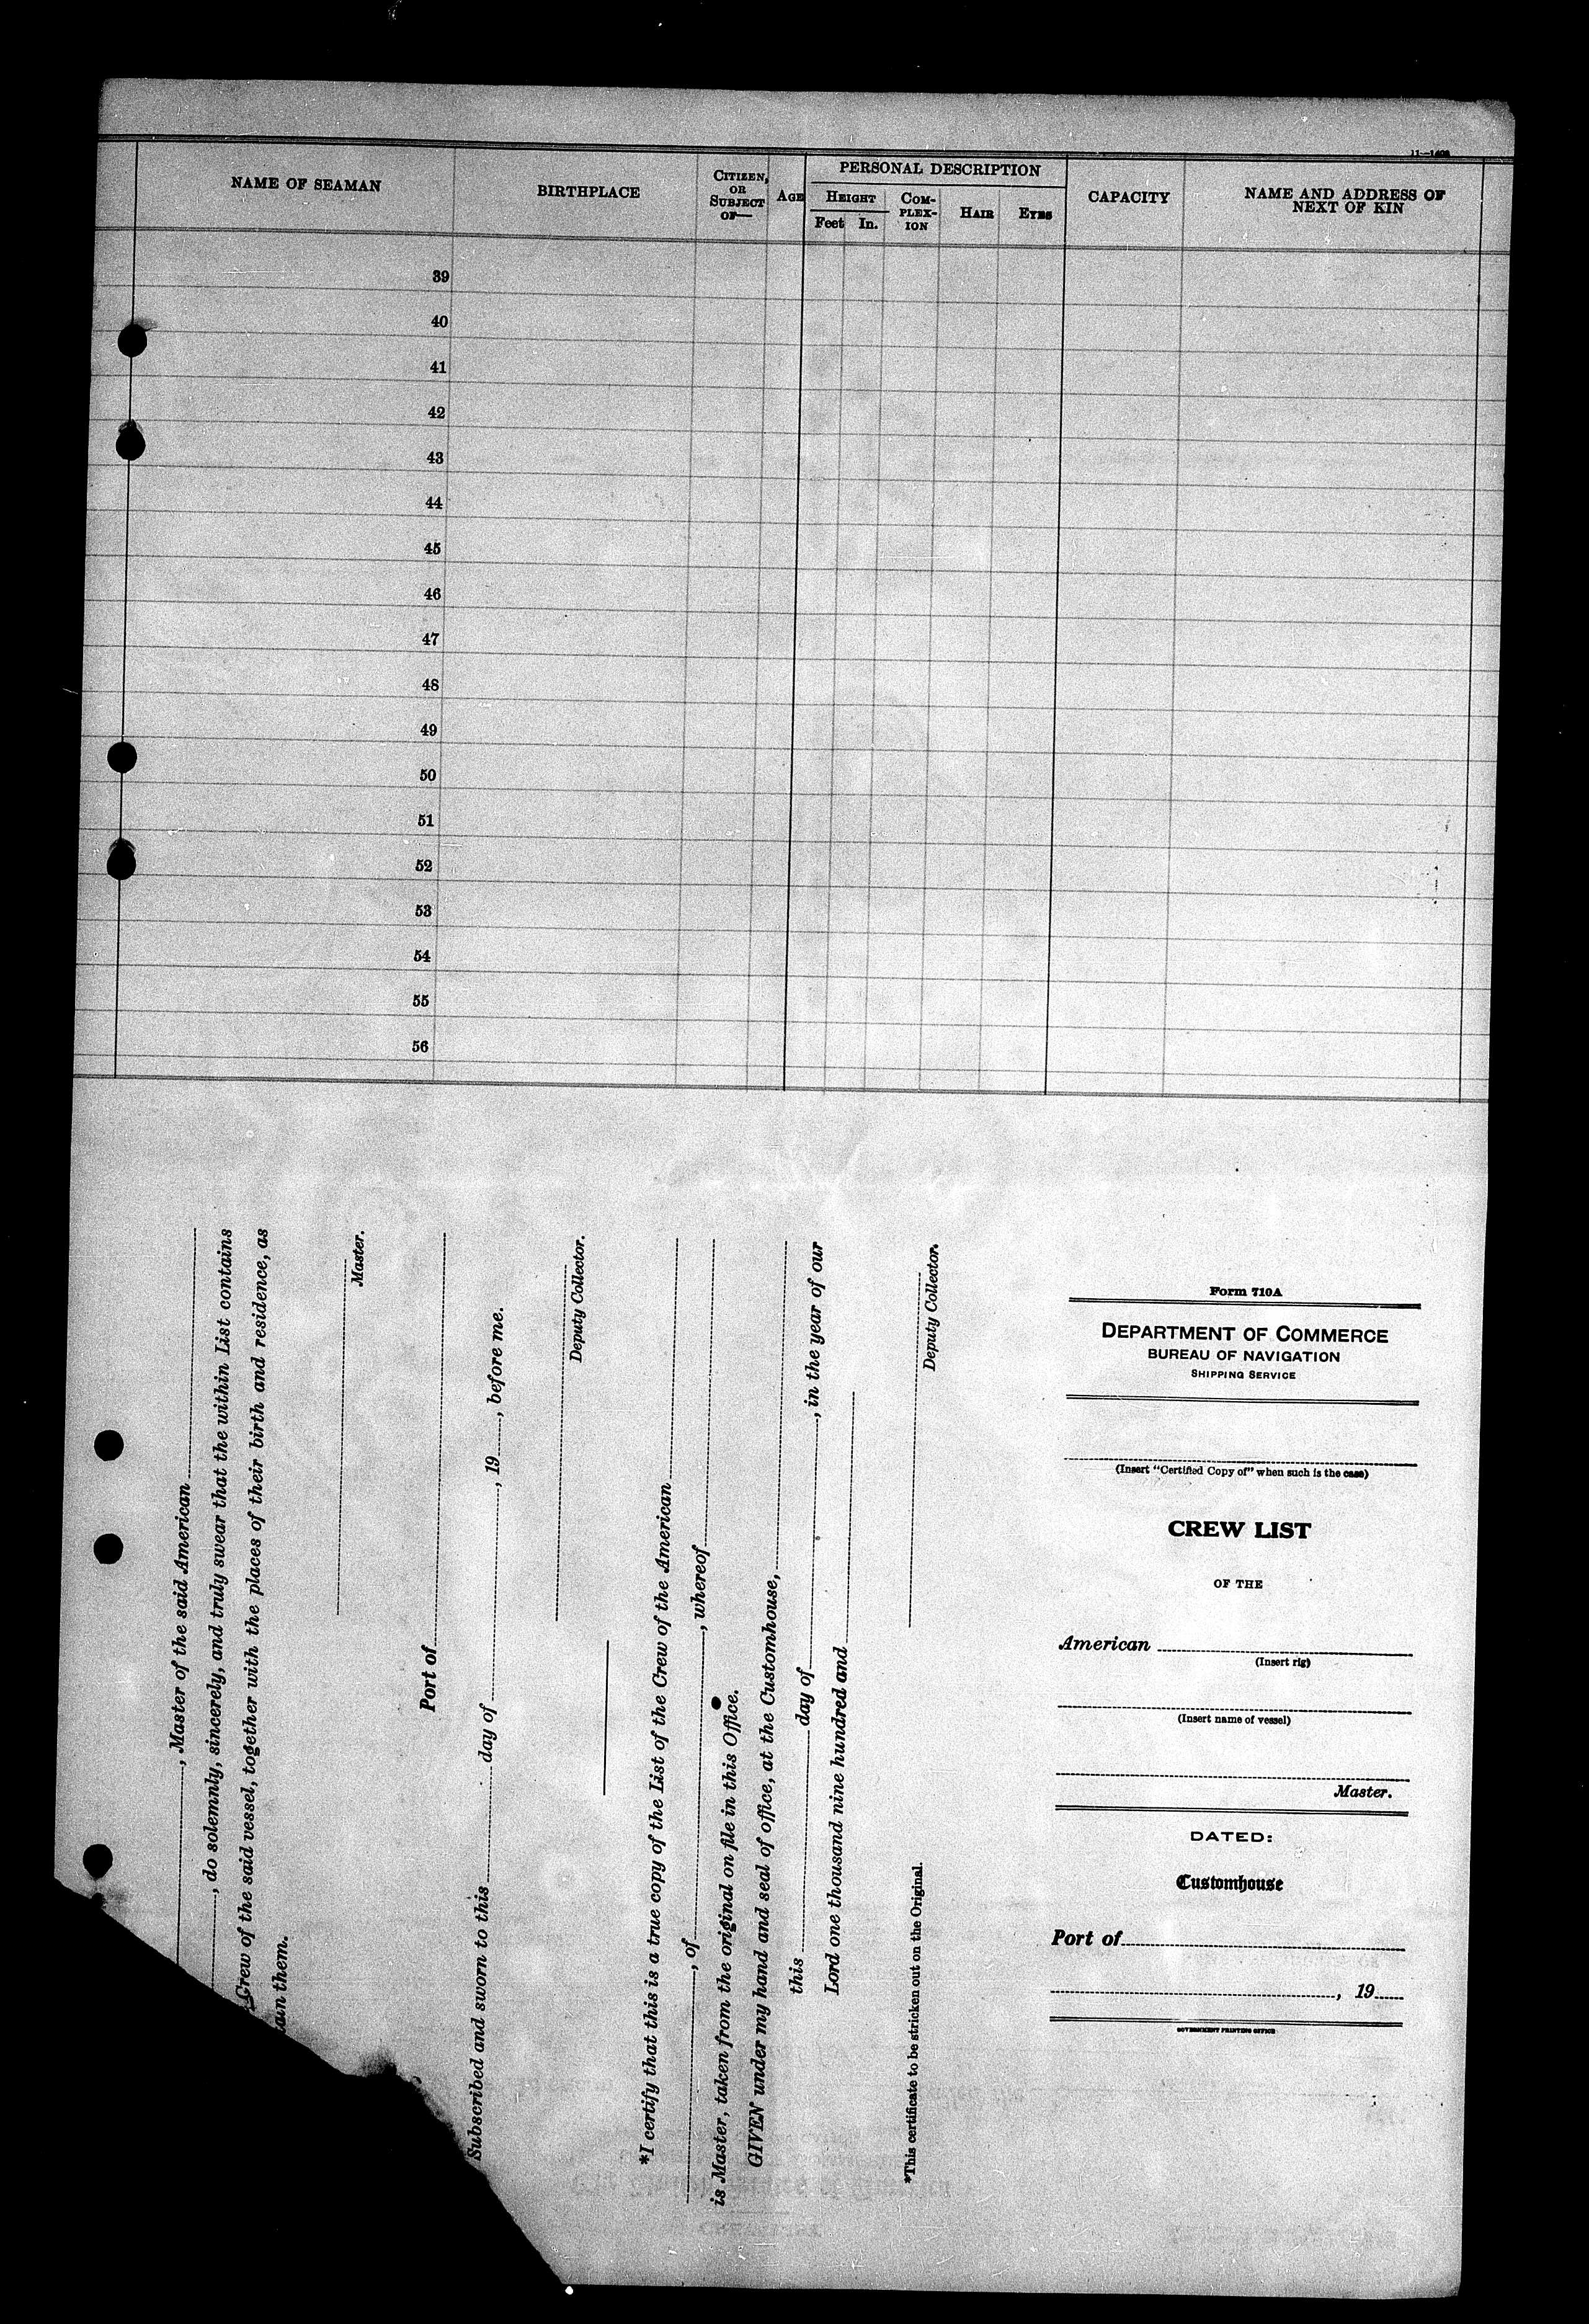 11—1408
NAME OF SEAMAN
BIRTHPLACE
CITIZEN, OR SUBJECT OF—
AGE
PERSONAL DESCRIPTION
HEIGHT
Feet In.
COM-PLEX-ION
HAIR
EYES
CAPACITY
NAME AND ADDRESS OF
NEXT OF KIN
39
40
41
42
43
44
45
46
47
48
49
50
51
52
53
54
55
56
, Master of the said American
, do solemnly, sincerely, and truly swear that the within List contains
Crew of the said vessel, together with the places of their birth and residence, as
them.
Master.
Port of
Subscribed and sworn to this day of , 19 , before me.
Deputy Collector.
*I certify that this is a true copy of the List of the Crew of the American
, of , whereof
is Master, taken from the original on file in this Office.
GIVEN under my hand and seal of office, at the Customhouse,
this day of , in the year of our
Lord one thousand nine hundred and
Deputy Collector.
*This certificate to be stricken out on the Original.
Form 710A
DEPARTMENT OF COMMERCE
BUREAU OF NAVIGATION
SHIPPING SERVICE
(Insert "Certified Copy of" when such is the case)
CREW LIST
OF THE
American
(Insert rig)
(Insert name of vessel)
Master.
DATED:
Customhouse
Port of
, 19
GOVERNMENT PRINTING OFFICE